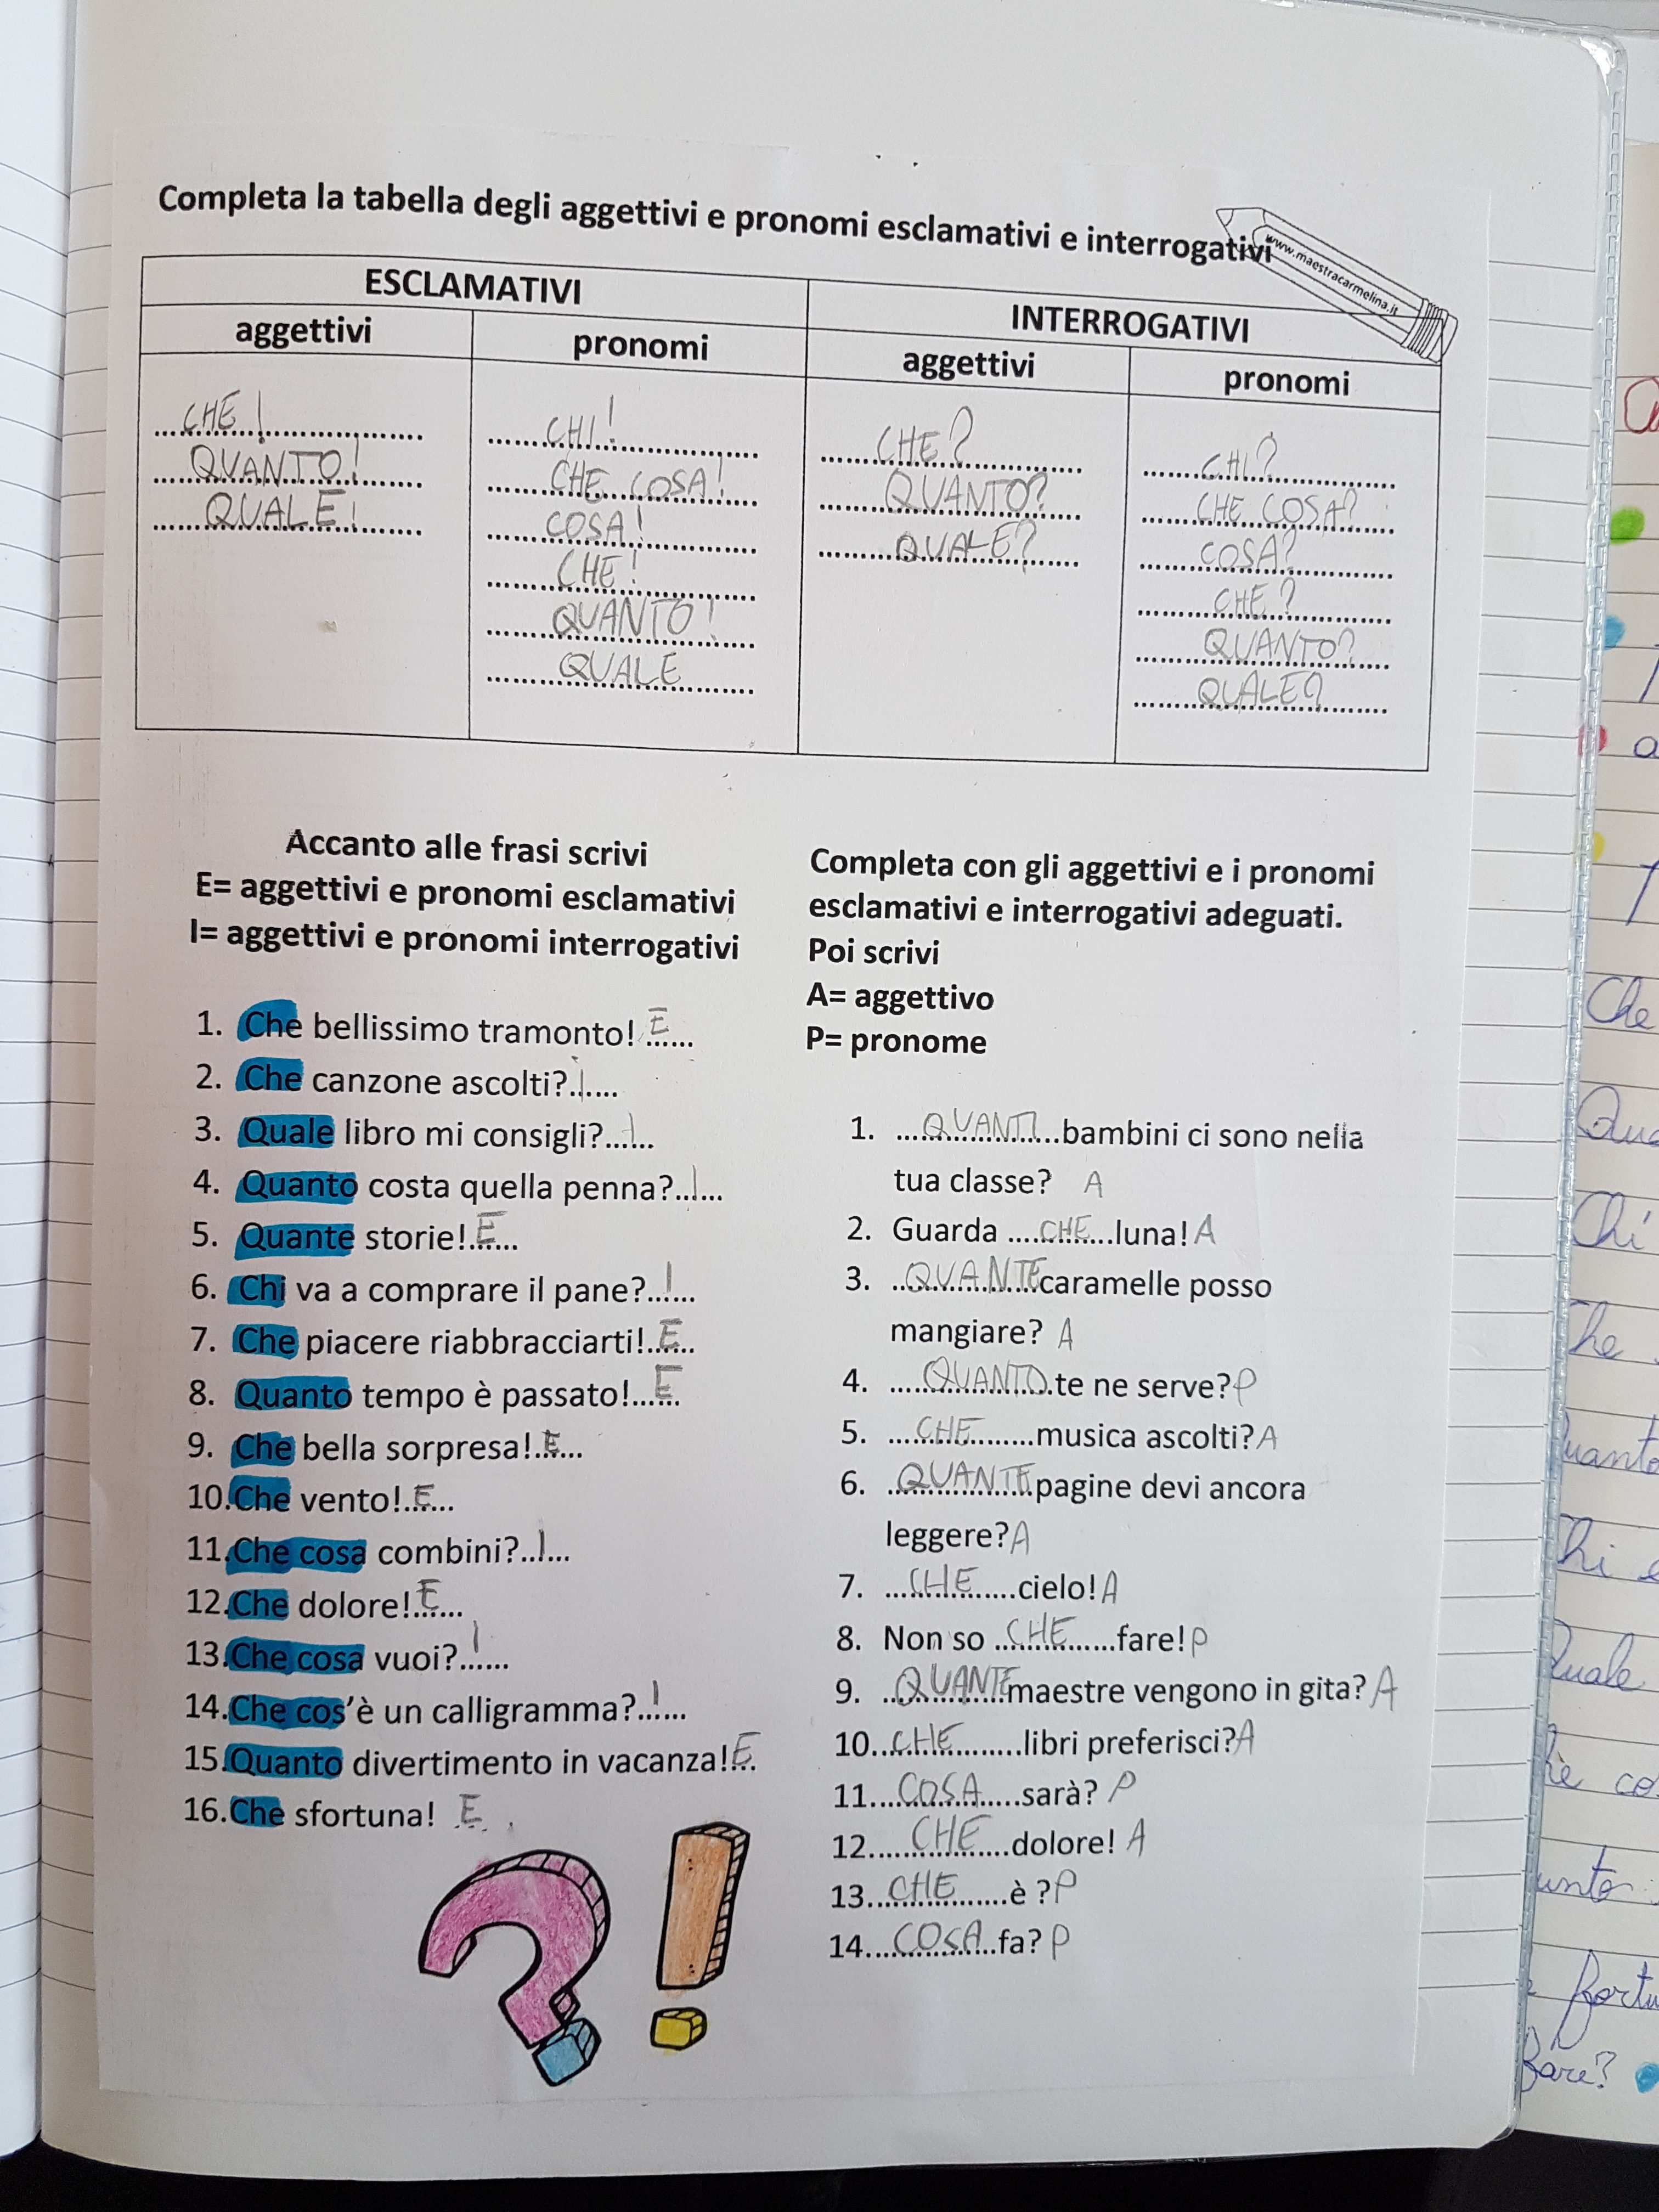 Completa la tabella degli aggettivi e pronomi esclamativi e interrogativi
www.maestracarmelina.it
ESCLAMATIVI
INTERROGATIVI
aggettivi
pronomi
aggettivi
pronomi
CHE!
QUANTO!
QUALE!
CHI!
CHE COSA!
COSA!
CHE!
QUANTO!
QUALE
CHE?
QUANTO?
QUALE?
CHI?
CHE COSA?
COSA?
CHE?
QUANTO?
QUALE?
Accanto alle frasi scrivi
E= aggettivi e pronomi esclamativi
I= aggettivi e pronomi interrogativi
1. Che bellissimo tramonto! E
2. Che canzone ascolti? I
3. Quale libro mi consigli? I
4. Quanto costa quella penna? I
5. Quante storie! E
6. Chi va a comprare il pane? I
7. Che piacere riabbracciarti! E
8. Quanto tempo è passato! E
9. Che bella sorpresa! E
10. Che vento! E
11. Che cosa combini? I
12. Che dolore! E
13. Che cosa vuoi? I
14. Che cos'è un calligramma? I
15. Quanto divertimento in vacanza! E
16. Che sfortuna! E
Completa con gli aggettivi e i pronomi
esclamativi e interrogativi adeguati.
Poi scrivi
A= aggettivo
P= pronome
1. QUANTI bambini ci sono nella
tua classe? A
2. Guarda CHE luna! A
3. QUANTE caramelle posso
mangiare? A
4. QUANTO te ne serve? P
5. CHE musica ascolti? A
6. QUANTE pagine devi ancora
leggere? A
7. CHE cielo! A
8. Non so CHE fare! P
9. QUANTE maestre vengono in gita? A
10. CHE libri preferisci? A
11. COSA sarà? P
12. CHE dolore! A
13. CHE è ? P
14. COSA fa? P
Che
Chi
Quale
fare?